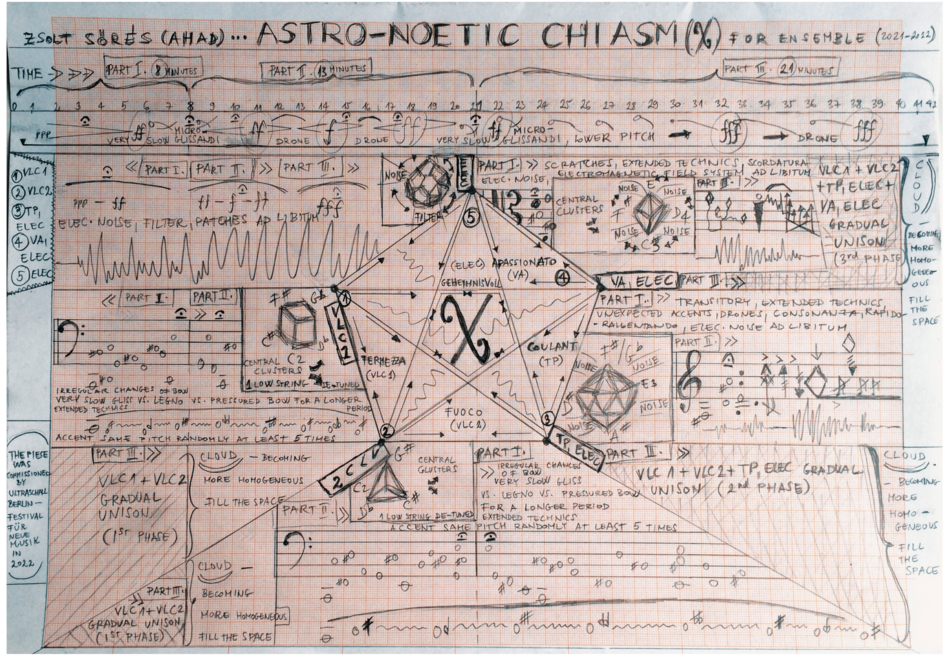 ZSOLT SŐRÉS (AHAD)... ASTRO-NOETIC CHIASM (χ) FOR ENSEMBLE (2021-2022)
TIME >>> PART I. 8 MINUTES PART II. 13 MINUTES PART III. 21 MINUTES
0 1 2 3 4 5 6 7 8 9 10 11 12 13 14 15 16 17 18 19 20 21 22 23 24 25 26 27 28 29 30 31 32 33 34 35 36 37 38 39 40 41 42
PPP ff MICRO- ff f ff ff MICRO- fff fff
VERY SLOW GLISSANDI DRONE DRONE VERY SLOW GLISSANDI, LOWER PITCH DRONE
① VLC1
② VLC2
③ TP, ELEC
④ VA, ELEC
⑤ ELEC
<< PART I. >> PART II. >> PART III. >>
PPP — ff ff — f — ff fff
ELEC. NOISE, FILTER, PATCHES AD LIBITUM
NOISE
FILTER
ELEC
⑤
PART I. >> SCRATCHES, EXTENDED TECHNICS, SCORDATURA
ELEC. NOISE, ELECTROMAGNETIC FIELD SYSTEM AD LIBITUM
CENTRAL CLUSTERS
NOISE E NOISE
NOISE NOISE
PART III. >>
VLC1 + VLC2
+ TP, ELEC +
VA, ELEC
GRADUAL
UNISON
(3RD PHASE)
CLOUD —
BECOMING
MORE
HOMO-
GENE-
OUS
FILL
THE
SPACE
(ELEC) APASSIONATO
(VA)
GEHEIMNISVOLL
④
χ
TENREZZA
(VLC1)
COULANT
(TP)
FUOCO
(VLC2)
VA, ELEC PART III. >>
PART I. >> TRANSITORY, EXTENDED TECHNICS,
UNEXPECTED ACCENTS, DRONES, CONSONANZA, RAPIDO-
- RALLENDANDO, ELEC. NOISE AD LIBITUM
<< PART I. >> PART II. >>
F# G1
①
VLC1
CENTRAL C2
CLUSTERS
1 LOW STRING DE-TUNED
IRREGULAR CHANGES OF BOW
VERY SLOW GLISS VS. LEGNO VS. PRESSURED BOW FOR A LONGER
EXTENDED TECHNICS PERIOD
ACCENT SAME PITCH RANDOMLY AT LEAST 5 TIMES
F#/Gb
NOISE NOISE
E3
NOISE
A
PART II. >>
THE PIECE
WAS
COMMISSIONED
BY
ULTRASCHALL
BERLIN —
FESTIVAL
FÜR
NEUE
MUSIK
IN
2022
PART III. >>
VLC1 + VLC2
GRADUAL
UNISON
(1ST PHASE)
CLOUD — BECOMING
MORE HOMOGENEOUS
FILL THE SPACE
②
VLC2
G#
CENTRAL
CLUSTERS
1 LOW STRING DE-TUNED
PART II. >>
PART I. >>
IRREGULAR CHANGES
OF BOW
VERY SLOW GLISS
VS. LEGNO VS. PRESSURED BOW
FOR A LONGER PERIOD
EXTENDED TECHNICS
ACCENT SAME PITCH RANDOMLY AT LEAST 5 TIMES
③
TP, ELEC PART III. >>
VLC1 + VLC2 + TP, ELEC GRADUAL
UNISON (2ND PHASE)
CLOUD
— BECOMING
MORE
HOMO —
GENEOUS
FILL
THE
SPACE
CLOUD —
BECOMING
MORE HOMOGENEOUS
FILL THE SPACE
PART III. >>
VLC1 + VLC2
GRADUAL UNISON
(1ST PHASE)